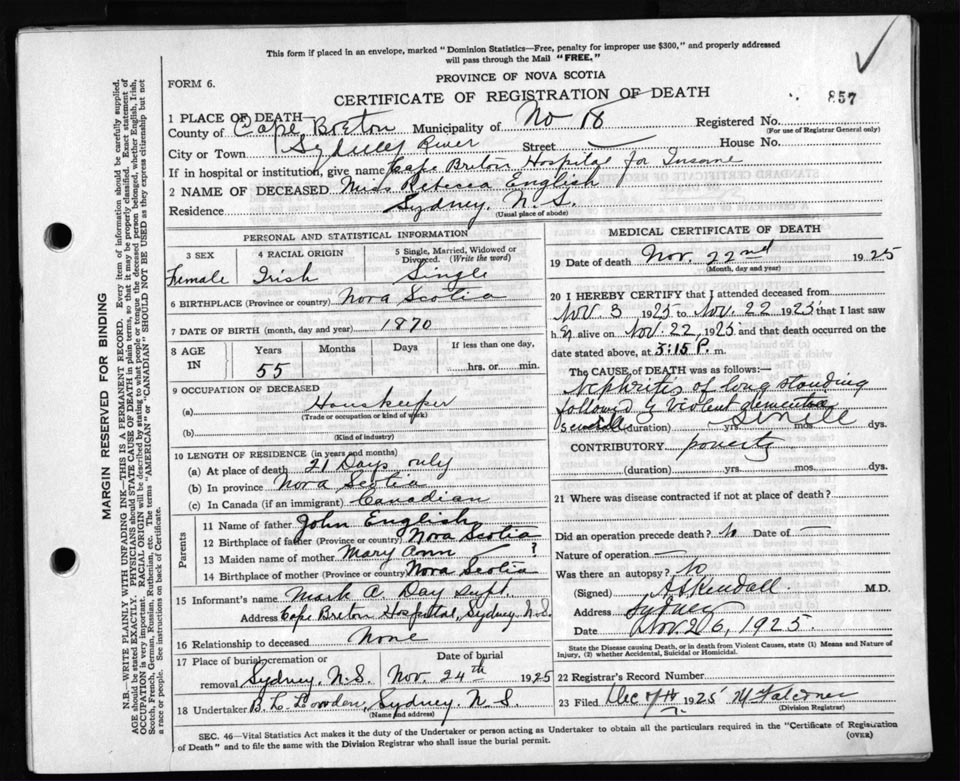 This form if placed in an envelope, marked "Dominion Statistics—Free, penalty for improper use $300," and properly addressed
will pass through the Mail "FREE."
PROVINCE OF NOVA SCOTIA
FORM 6.
CERTIFICATE OF REGISTRATION OF DEATH
857
1 PLACE OF DEATH—
County of Cape Breton Municipality of No 18 Registered No.
(For use of Registrar General only)
City or Town Sydney River Street House No.
If in hospital or institution, give name Cape Breton Hospital for Insane
2 NAME OF DECEASED Miss Rebecca English
Residence Sydney, N.S.
(Usual place of abode)
PERSONAL AND STATISTICAL INFORMATION
3 SEX 4 RACIAL ORIGIN 5 Single, Married, Widowed or Divorced. (Write the word)
Female Irish Single
6 BIRTHPLACE (Province or country) Nova Scotia
7 DATE OF BIRTH (month, day and year) 1870
8 AGE IN Years Months Days If less than one day,
55 hrs. or min.
9 OCCUPATION OF DECEASED
(a) Houskeeper
(Trade or occupation or kind of work)
(b)
(Kind of industry)
10 LENGTH OF RESIDENCE (in years and months)
(a) At place of death 21 Days only
(b) In province Nova Scotia
(c) In Canada (if an immigrant) Canadian
Parents
11 Name of father John English
12 Birthplace of father (Province or country) Nova Scotia
13 Maiden name of mother Mary Ann — ?
14 Birthplace of mother (Province or country) Nova Scotia
15 Informant's name Mark A. Day supt.
Address Cape Breton Hospital, Sydney N.S.
16 Relationship to deceased None
17 Place of burial, cremation or removal Date of burial
Sydney, N.S. Nov. 24th 1925
18 Undertaker Sydney N.S.
(Name and address)
MEDICAL CERTIFICATE OF DEATH
19 Date of death Nov. 22nd 1925
(Month, day and year)
20 I HEREBY CERTIFY that I attended deceased from
Nov 3 1925 to Nov. 22 1925 that I last saw
her alive on Nov. 22, 1925 and that death occurred on the
date stated above, at 3:15 P. m.
The CAUSE of DEATH was as follows:—
Nephrites of long standing
followed by violent dementia
(duration) yrs. mos. dys.
Senile
CONTRIBUTORY poverty
(duration) yrs. mos. dys.
21 Where was disease contracted if not at place of death?
Did an operation precede death? No Date of —
Nature of operation —
Was there an autopsy? No
(Signed) Kendall M.D.
Address Sydney
Date Nov. 26, 1925.
State the Disease causing Death, or in death from Violent Causes, state (1) Means and Nature of
Injury, (2) whether Accidental, Suicidal or Homicidal.
22 Registrar's Record Number
23 Filed Dec 7th 1925 M Falconer
(Division Registrar)
SEC. 46—Vital Statistics Act makes it the duty of the Undertaker or person acting as Undertaker to obtain all the particulars required in the "Certificate of Registration
of Death" and to file the same with the Division Registrar who shall issue the burial permit.
(OVER)
MARGIN RESERVED FOR BINDING
N.B.—WRITE PLAINLY WITH UNFADING INK—THIS IS A PERMANENT RECORD. Every item of information should be carefully supplied.
AGE should be stated EXACTLY. PHYSICIANS should STATE CAUSE OF DEATH in plain terms, so that it may be properly classified. Exact statement of
OCCUPATION is very important. RACIAL ORIGIN will be described by stating to what people or tongue the deceased person belonged, whether English, Irish,
Scotch, French, German, Russian, Ruthenian, etc. The terms "AMERICAN" or "CANADIAN" SHOULD NOT BE USED as they express citizenship but not
a race or people. See instructions on back of Certificate.